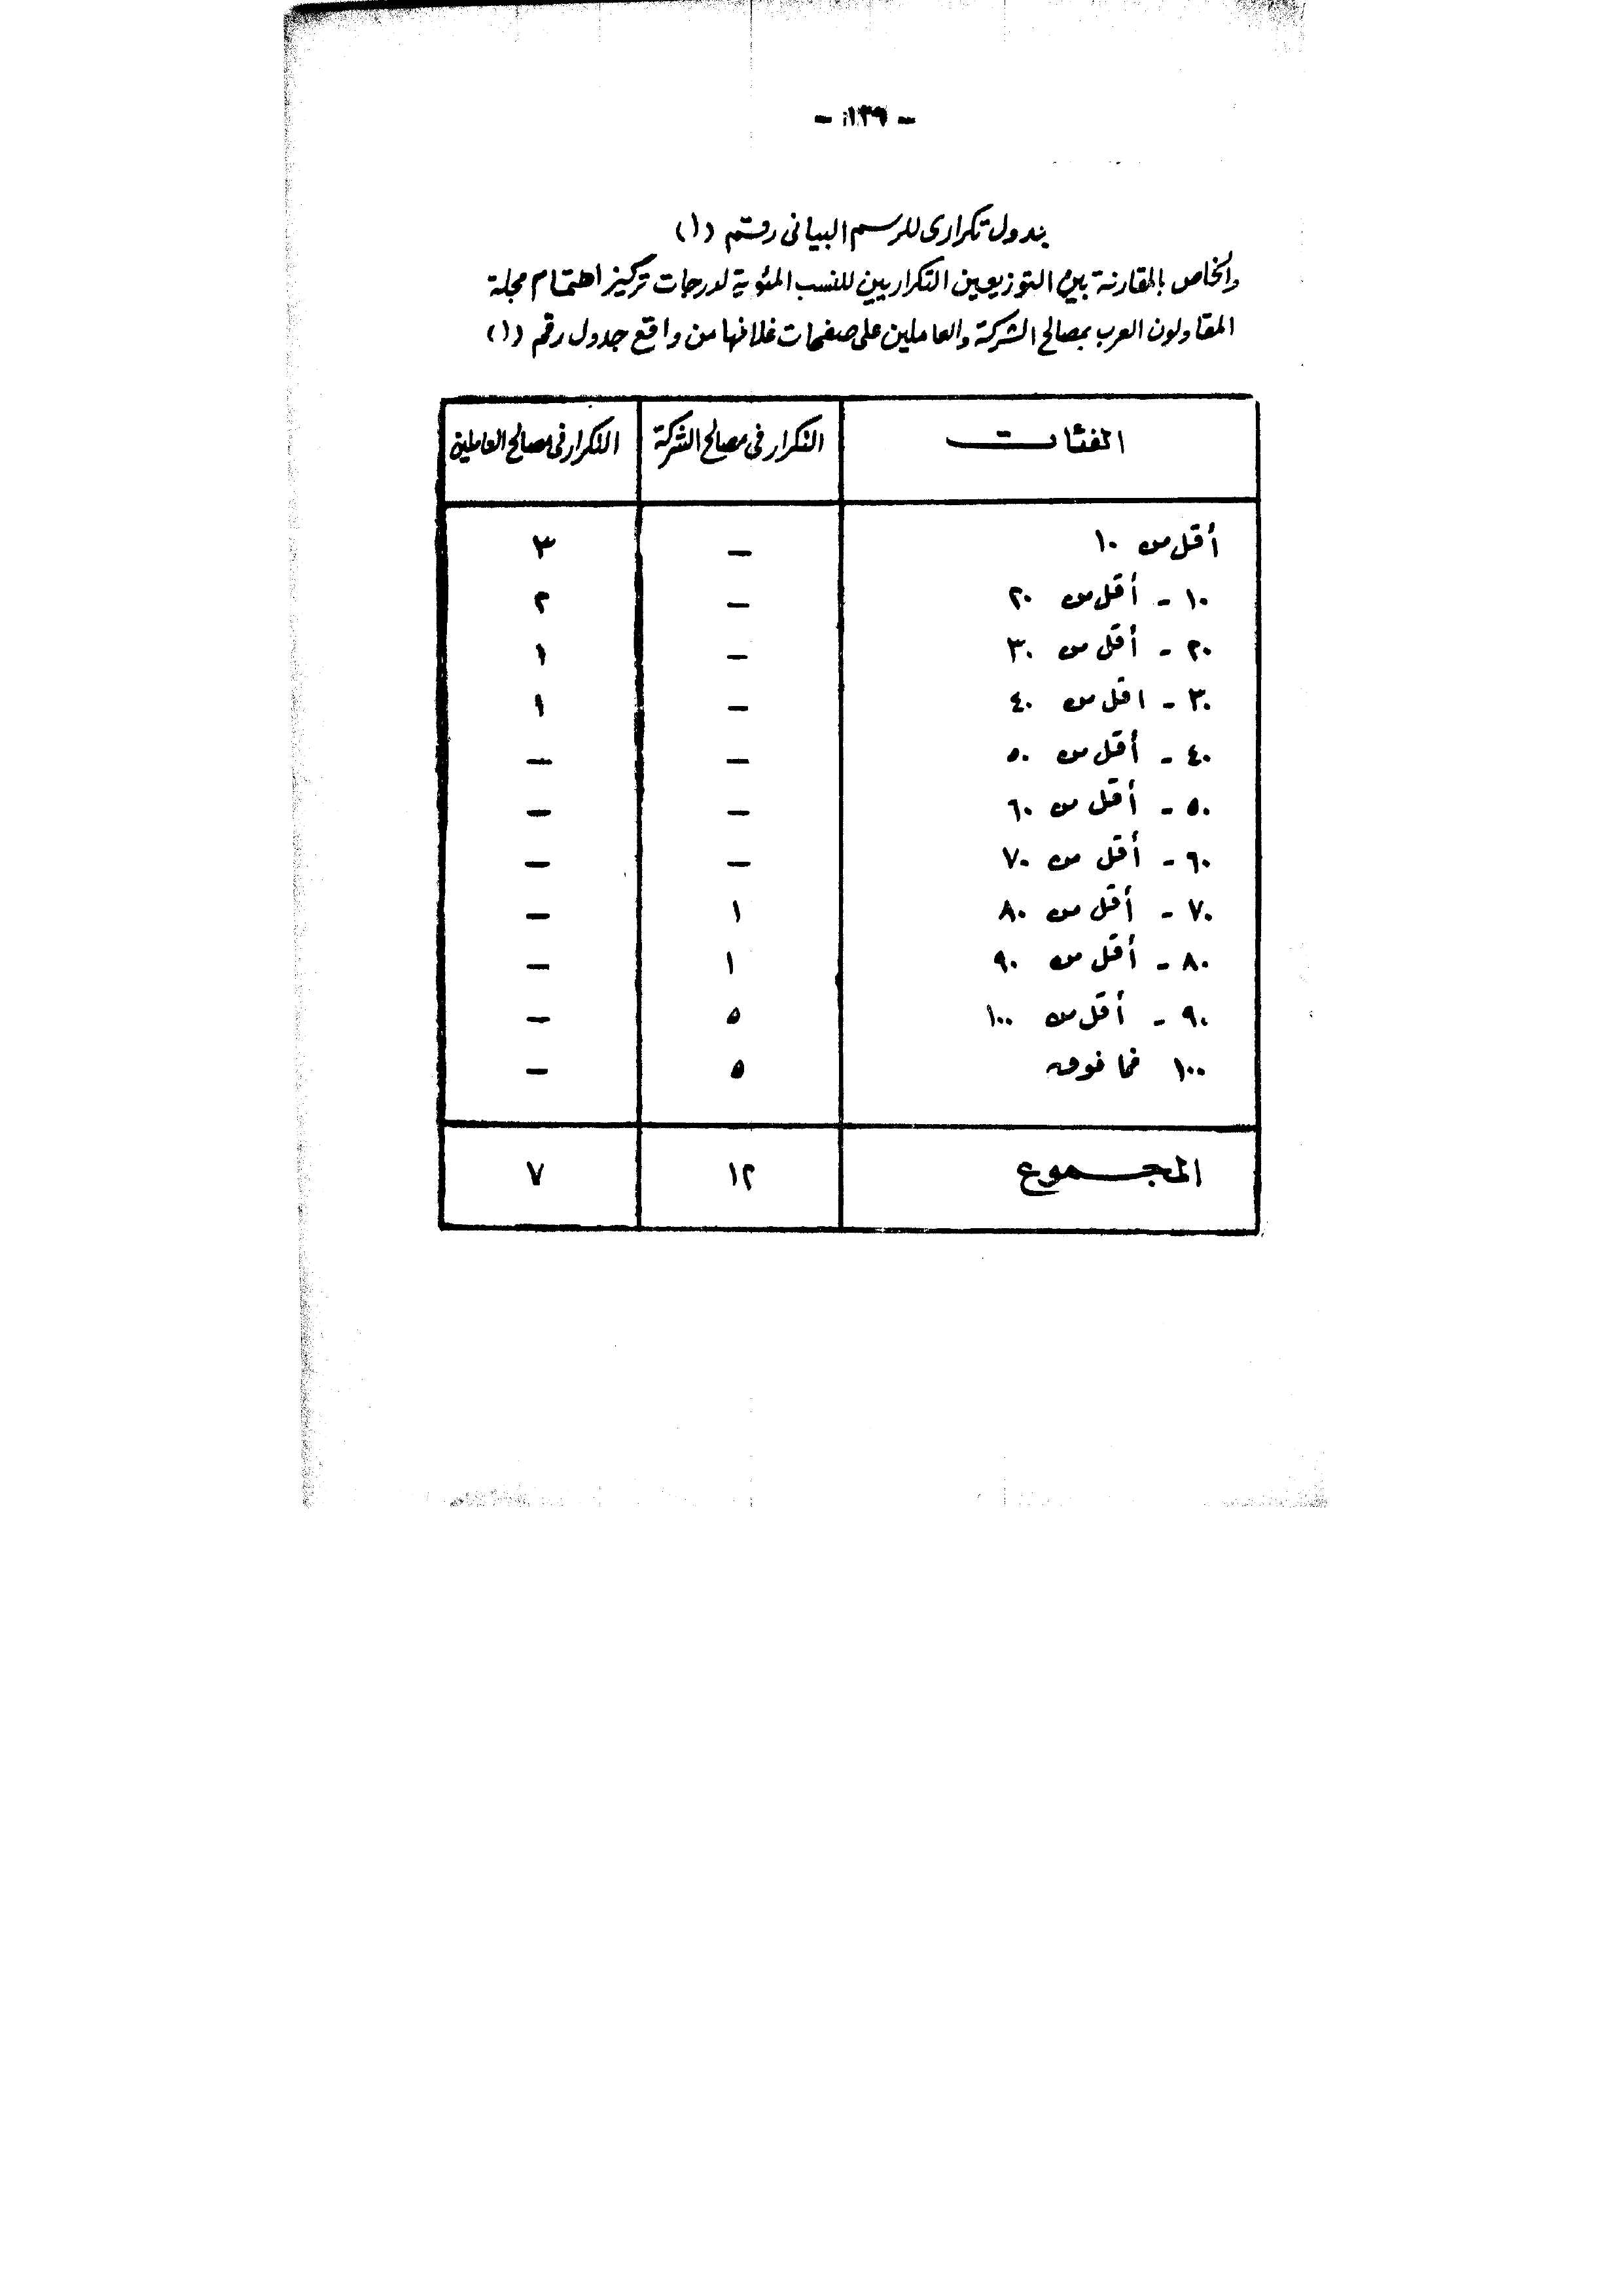 - ١٣٩ -
جدول تكرارى للرسم البيانى رقم (١)
والخاص بالمقارنة بين التوزيعين التكراريين للنسب المئوية لدرجات تركيز اهتمام مجلة
المقاولون العرب بمصالح الشركة والعاملين على صفحات غلافها من واقع جدول رقم (١)
الفئات التكرار فى مصالح الشركة التكرار فى مصالح العاملين
أقل من ١٠ — ٣
١٠ - أقل من ٢٠ — ٢
٢٠ - أقل من ٣٠ — ١
٣٠ - اقل من ٤٠ — ١
٤٠ - أقل من ٥٠ — —
٥٠ - أقل من ٦٠ — —
٦٠ - أقل من ٧٠ — —
٧٠ - أقل من ٨٠ ١ —
٨٠ - أقل من ٩٠ ١ —
٩٠ - أقل من ١٠٠ ٥ —
١٠٠ فما فوق ٥ —
المجموع ١٢ ٧